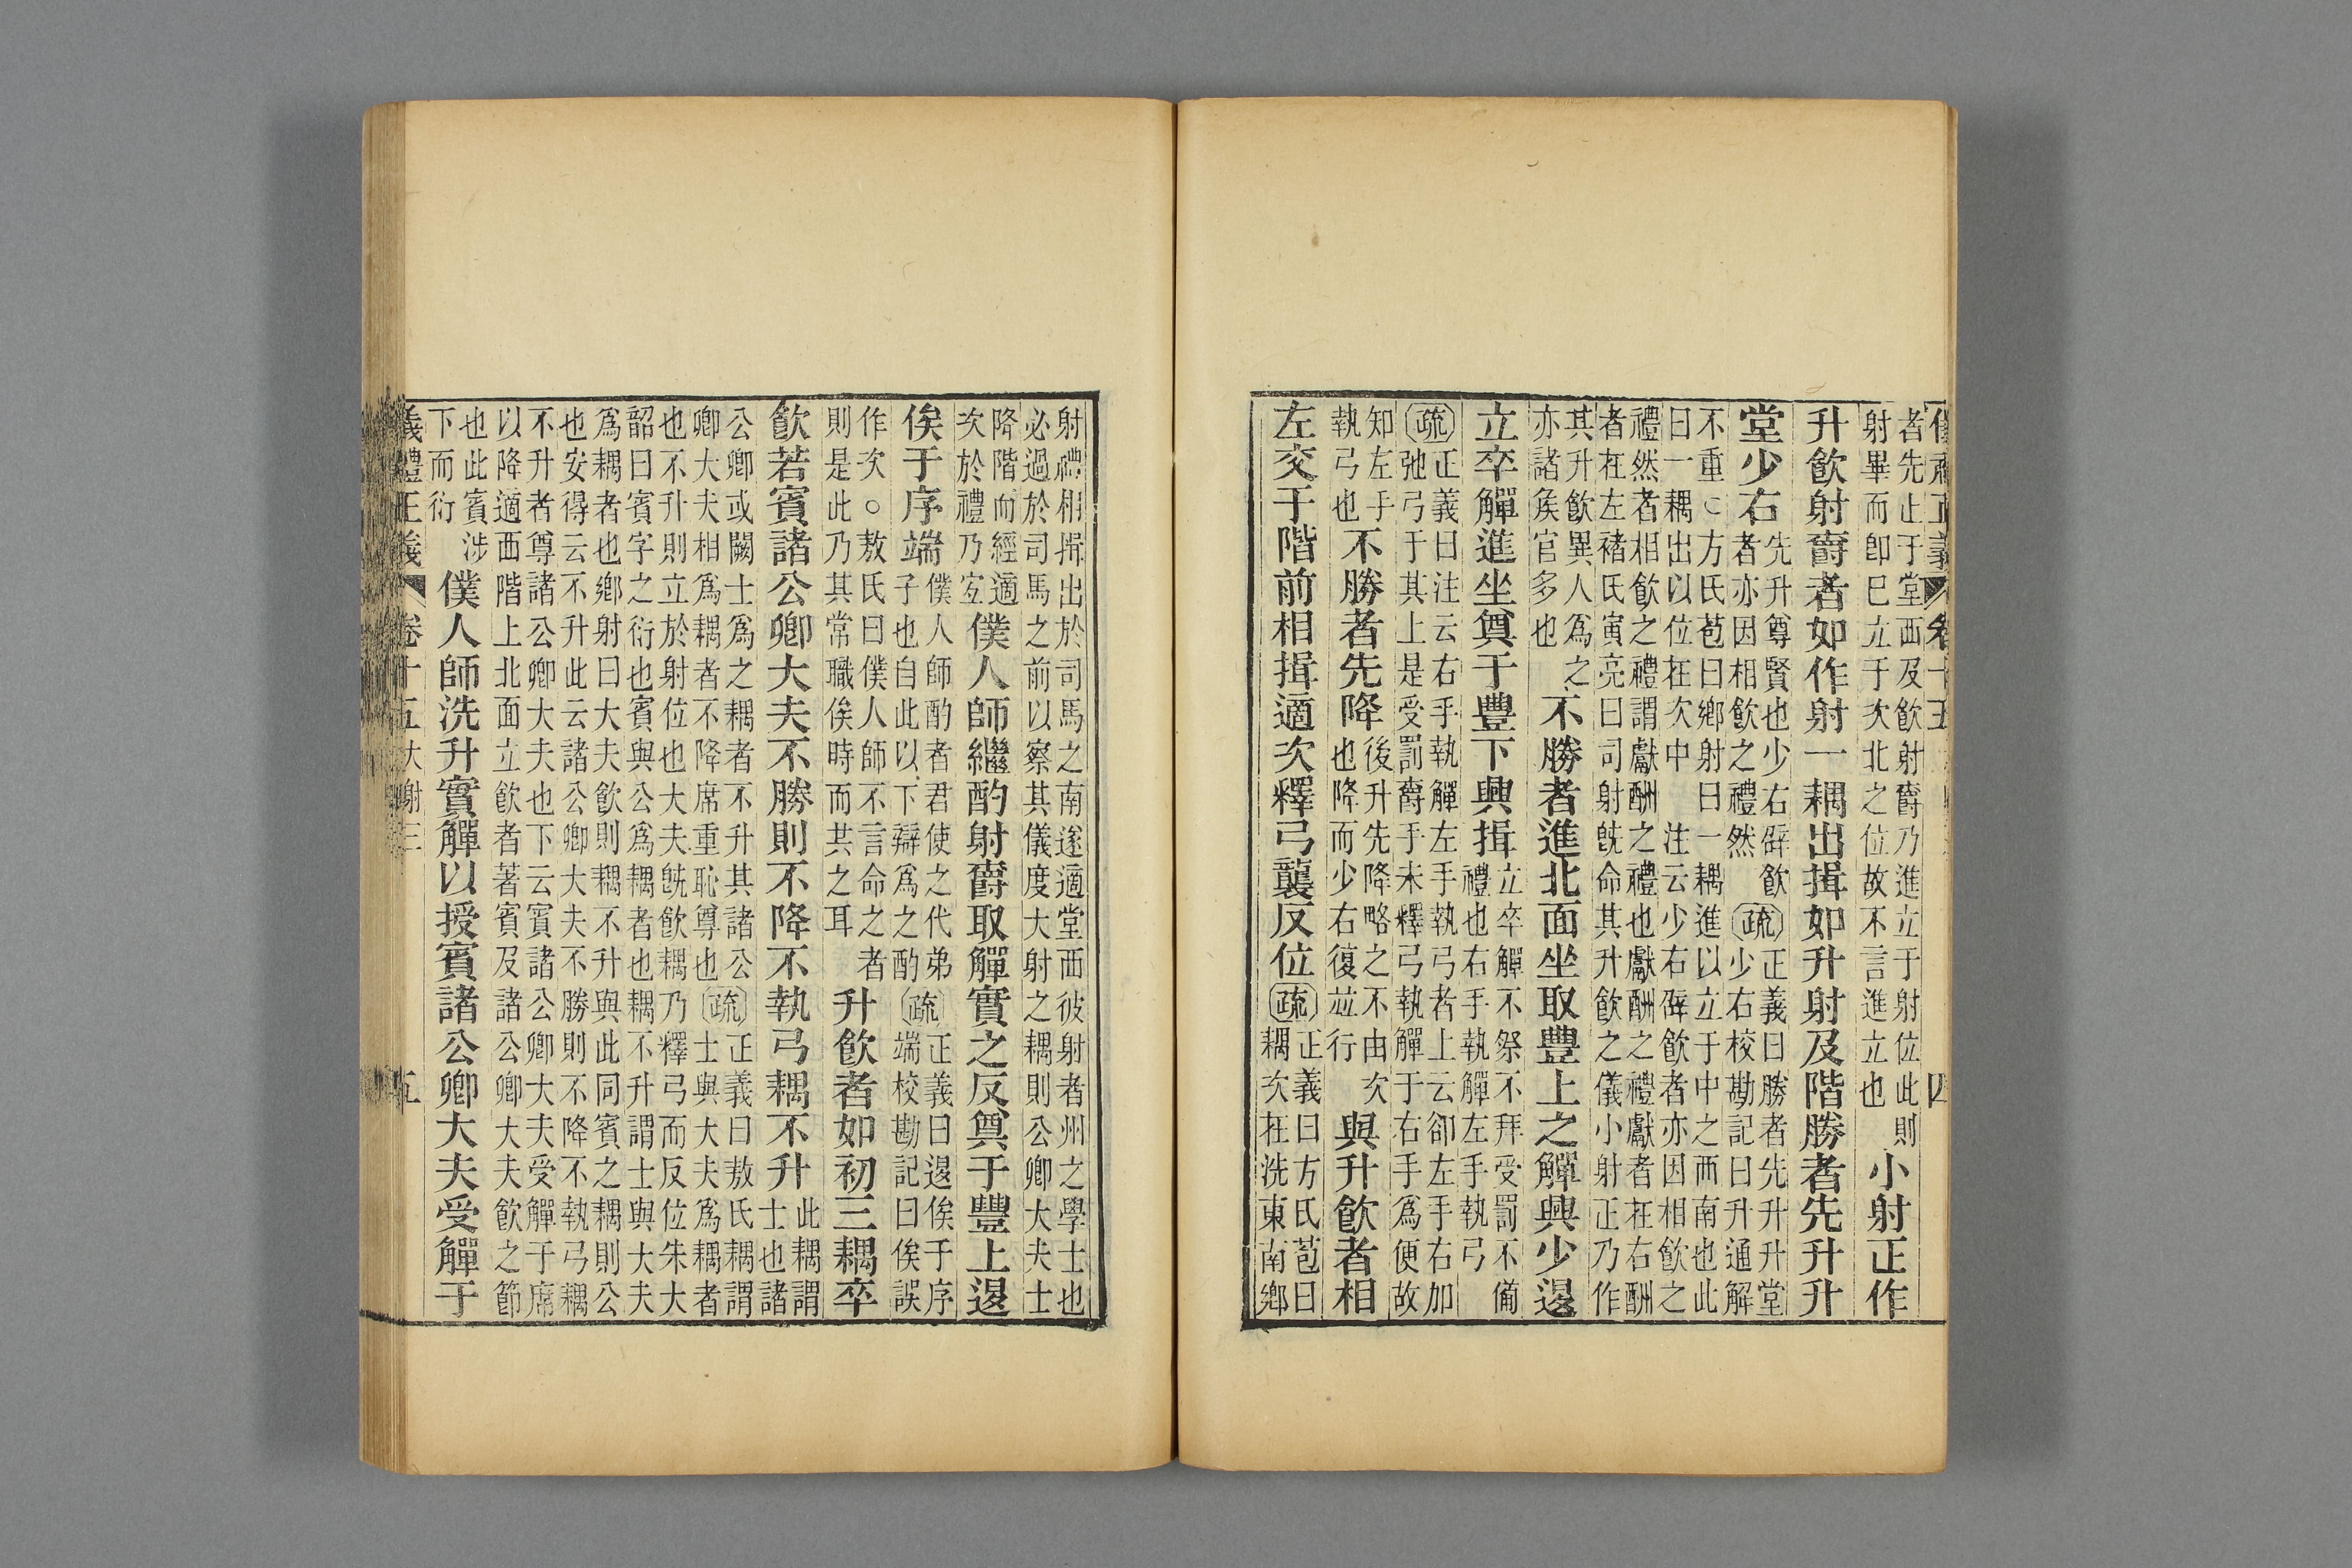 儀禮正義 卷十五 四
者先止于堂西及飲射爵乃進立于射位此則
射畢而卽巳立于次北之位故不言進立也
小射正作
升飮射爵者如作射一耦出揖如升射及階勝者先升升
堂少右
先升尊賢也少右辟飮
者亦因相飮之禮然
疏
正義曰勝者先升升堂
少右校勘記曰升通解
不重○方氏苞曰鄉射曰一耦進以立于中之西南也此
曰一耦出以位在次中 注云少右辟飮者亦因相飮之
禮然者相飮之禮謂獻酬之禮也獻酬之禮獻者在右酬
者在左褚氏寅亮曰司射旣命其升飮之儀小射正乃作
其升飮異人爲之
亦諸矦官多也
不勝者進北面坐取豐上之觶興少退
立卒觶進坐奠于豐下興揖
立卒觶不祭不拜受罰不備
禮也右手執觶左手執弓
疏
正義曰注云右手執觶左手執弓者上云卻左手右加
弛弓于其上是受罰爵手未釋弓執觶于右手爲便故
知左手
執弓也
不勝者先降
後升先降略之不由次
也降而少右復並行
與升飮者相
左交于階前相揖適次釋弓襲反位
疏
正義曰方氏苞曰
耦次在洗東南鄉
射禮相揖出於司馬之南遂適堂西彼射者州之學士也
必過於司馬之前以察其儀度大射之耦則公卿大夫士
降階而經適
次於禮乃宐
僕人師繼酌射爵取觶實之反奠于豐上退
俟于序端
僕人師酌者君使之代弟
子也自此以下辯爲之酌
疏
正義曰退俟于序
端校勘記曰俟誤
作次○敖氏曰僕人師不言命之者
則是此乃其常職俟時而共之耳
升飮者如初三耦卒
飮若賓諸公卿大夫不勝則不降不執弓耦不升
此耦謂
士也諸
公卿或闕士爲之耦者不升其諸公
卿大夫相爲耦者不降席重恥尊也
疏
正義曰敖氏耦謂
士與大夫爲耦者
也不升則立於射位也大夫旣飮耦乃釋弓而反位朱大
韶曰賓字之衍也賓與公爲耦者也耦不升謂士與大夫
爲耦者也鄉射曰大夫飮則耦不升與此同賓之耦則公
也安得云不升此云諸公卿大夫不勝則不降不執弓耦
不升者尊諸公卿大夫也下云賓諸公卿大夫受觶于席
以降適西階上北面立飮者著賓及諸公卿大夫飮之節
也此賓涉
下而衍
僕人師洗升實觶以授賓諸公卿大夫受觶于
義禮正義 卷十五 大射三 五